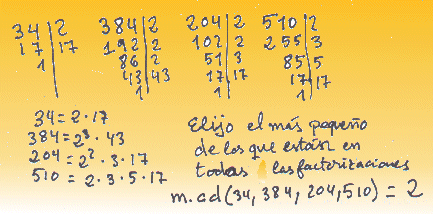 34 | 2
17 | 17
1
384 | 2
192 | 2
86 | 2
43 | 43
1
204 | 2
102 | 2
51 | 3
17 | 17
1
510 | 2
255 | 3
85 | 5
17 | 17
1
34 = 2 · 17
384 = 2³ · 43
204 = 2² · 3 · 17
510 = 2 · 3 · 5 · 17
Elijo el más pequeño
de los que están en
todas las factorizaciones
m.c.d (34, 384, 204, 510) = 2